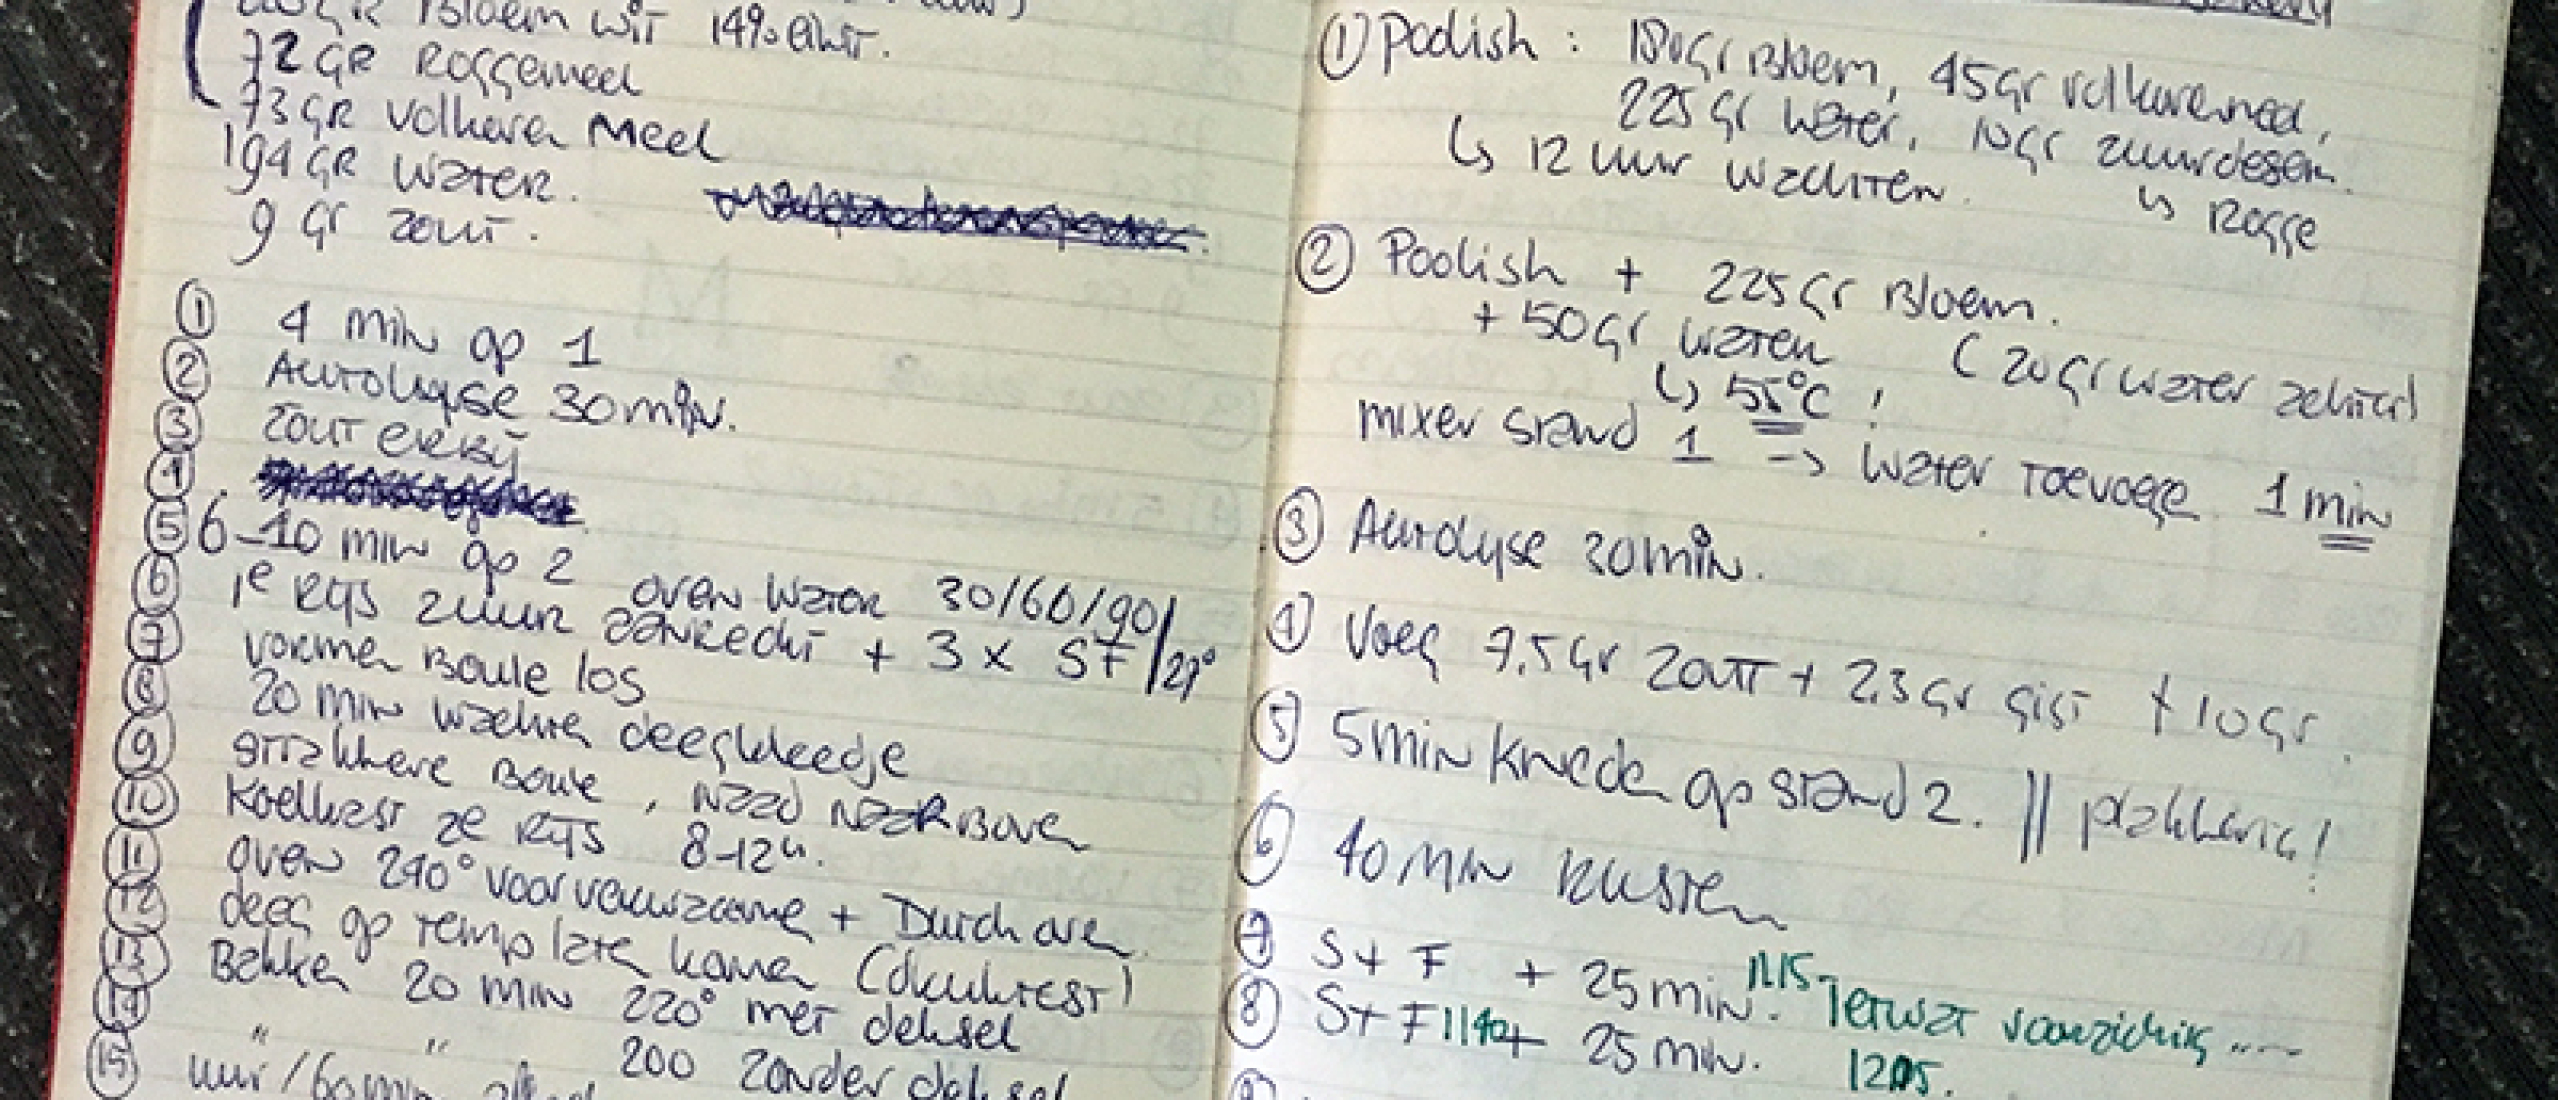 Bloem wit 14% eiwit.
72 GR Roggemeel
73 GR Volkoren Meel
194 GR Water.
9 gr zout.
① 4 min op 1
② Autolyse 30 min.
③ zout erbij
④
⑤ 6-10 min op 2
⑥ 1e Rijs zuur oven water 30/60/90/
aanrecht + 3 x SF /27°
⑦ vormen Boule los
⑧ 20 min wachten deegkleedje
⑨ strakkere Boule, naad naar Boven
⑩ Koelkast 2e Rijs 8-12u.
⑪ oven 240° voorverwarmen + Dutch oven
⑫ deeg op temp laten komen (druktest)
⑬ Bakken 20 min 220° met deksel
⑭ " " 200 zonder deksel
⑮ uur / 60 min
① Poolish : 180gr Bloem, 45gr volkorenmeel,
225 gr water, 10gr zuurdesem.
↳ 12 uur wachten. ↳ Rogge
② Poolish + 225 gr Bloem.
+ 50gr water (20gr water achter)
↳ 55°C !
mixer stand 1 → water toevoegen 1 min
③ Autolyse 30 min.
④ Voeg 7,5 gr zout + 2,3 gr gist + 10 gr.
⑤ 5 min kneden op stand 2. || plakkerig!
⑥ 40 min Rusten
⑦ S + F + 25 min. 11.15 Ietwat voorzichtig ....
⑧ S + F 1140 + 25 min. 1205.